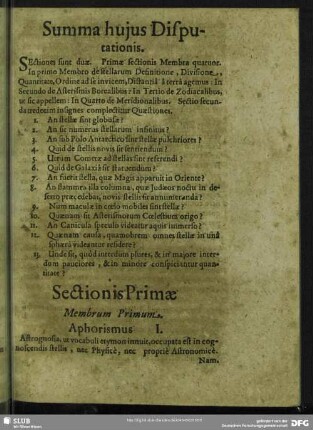 Summa hujus Dispu-
tationis.
SEctiones sint duæ. Primæ sectionis Membra quatuor.
In primo Membro de stellarum Definitione, Divisione,
Quantitate, Ordine ad se invicem, Distantiâ à terrâ agemus: In
Secundo de Asterismis Borealibus: In Tertio de Zodiacalibus,
ut sic appellem: In Quarto de Meridionalibus. Sectio secun-
da tredecim insignes complectitur Quæstiones.
1. An stellæ sint globosæ?
2. An sit numerus stellarum infinitus?
3. An sub Polo Antarctico sint stellæ pulchriores?
4. Quid de stellis novis sit sentiendum?
5. Utrum Cometæ ad stellas sint referendi?
6. Quid de Galaxiâ sit statuendum?
7. An fuerit stella, quæ Magis apparuit in Oriente?
8. An flamma illa columna, quæ Judæos noctu in de-
serto præcedebat, novis stellis sit annumeranda?
9. Num maculæ in cœlo mobiles sint stellæ?
10. Quænam sit Asterismorum Cœlestium origo?
11. An Canicula speculis videatur aquis immersis?
12. Quænam causa, quamobrem omnes stellæ in unâ
sphærâ videantur residere?
13. Unde sit, quod interdum plures, & in majore inter-
dum pauciores, & in minore conspiciantur quan-
titate?
Sectionis Primæ
Membrum Primum.
Aphorismus I.
Astrognosia, ut vocabuli etymon innuit, occupata est in cog-
noscendis stellis, nec Physicè, nec propriè Astronomicè.
Nam,
SLUB
DFG